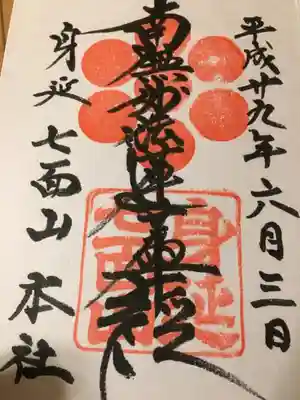 平成廿九年六月三日
南無妙法蓮華経
身延七面山本社
身延
七面山